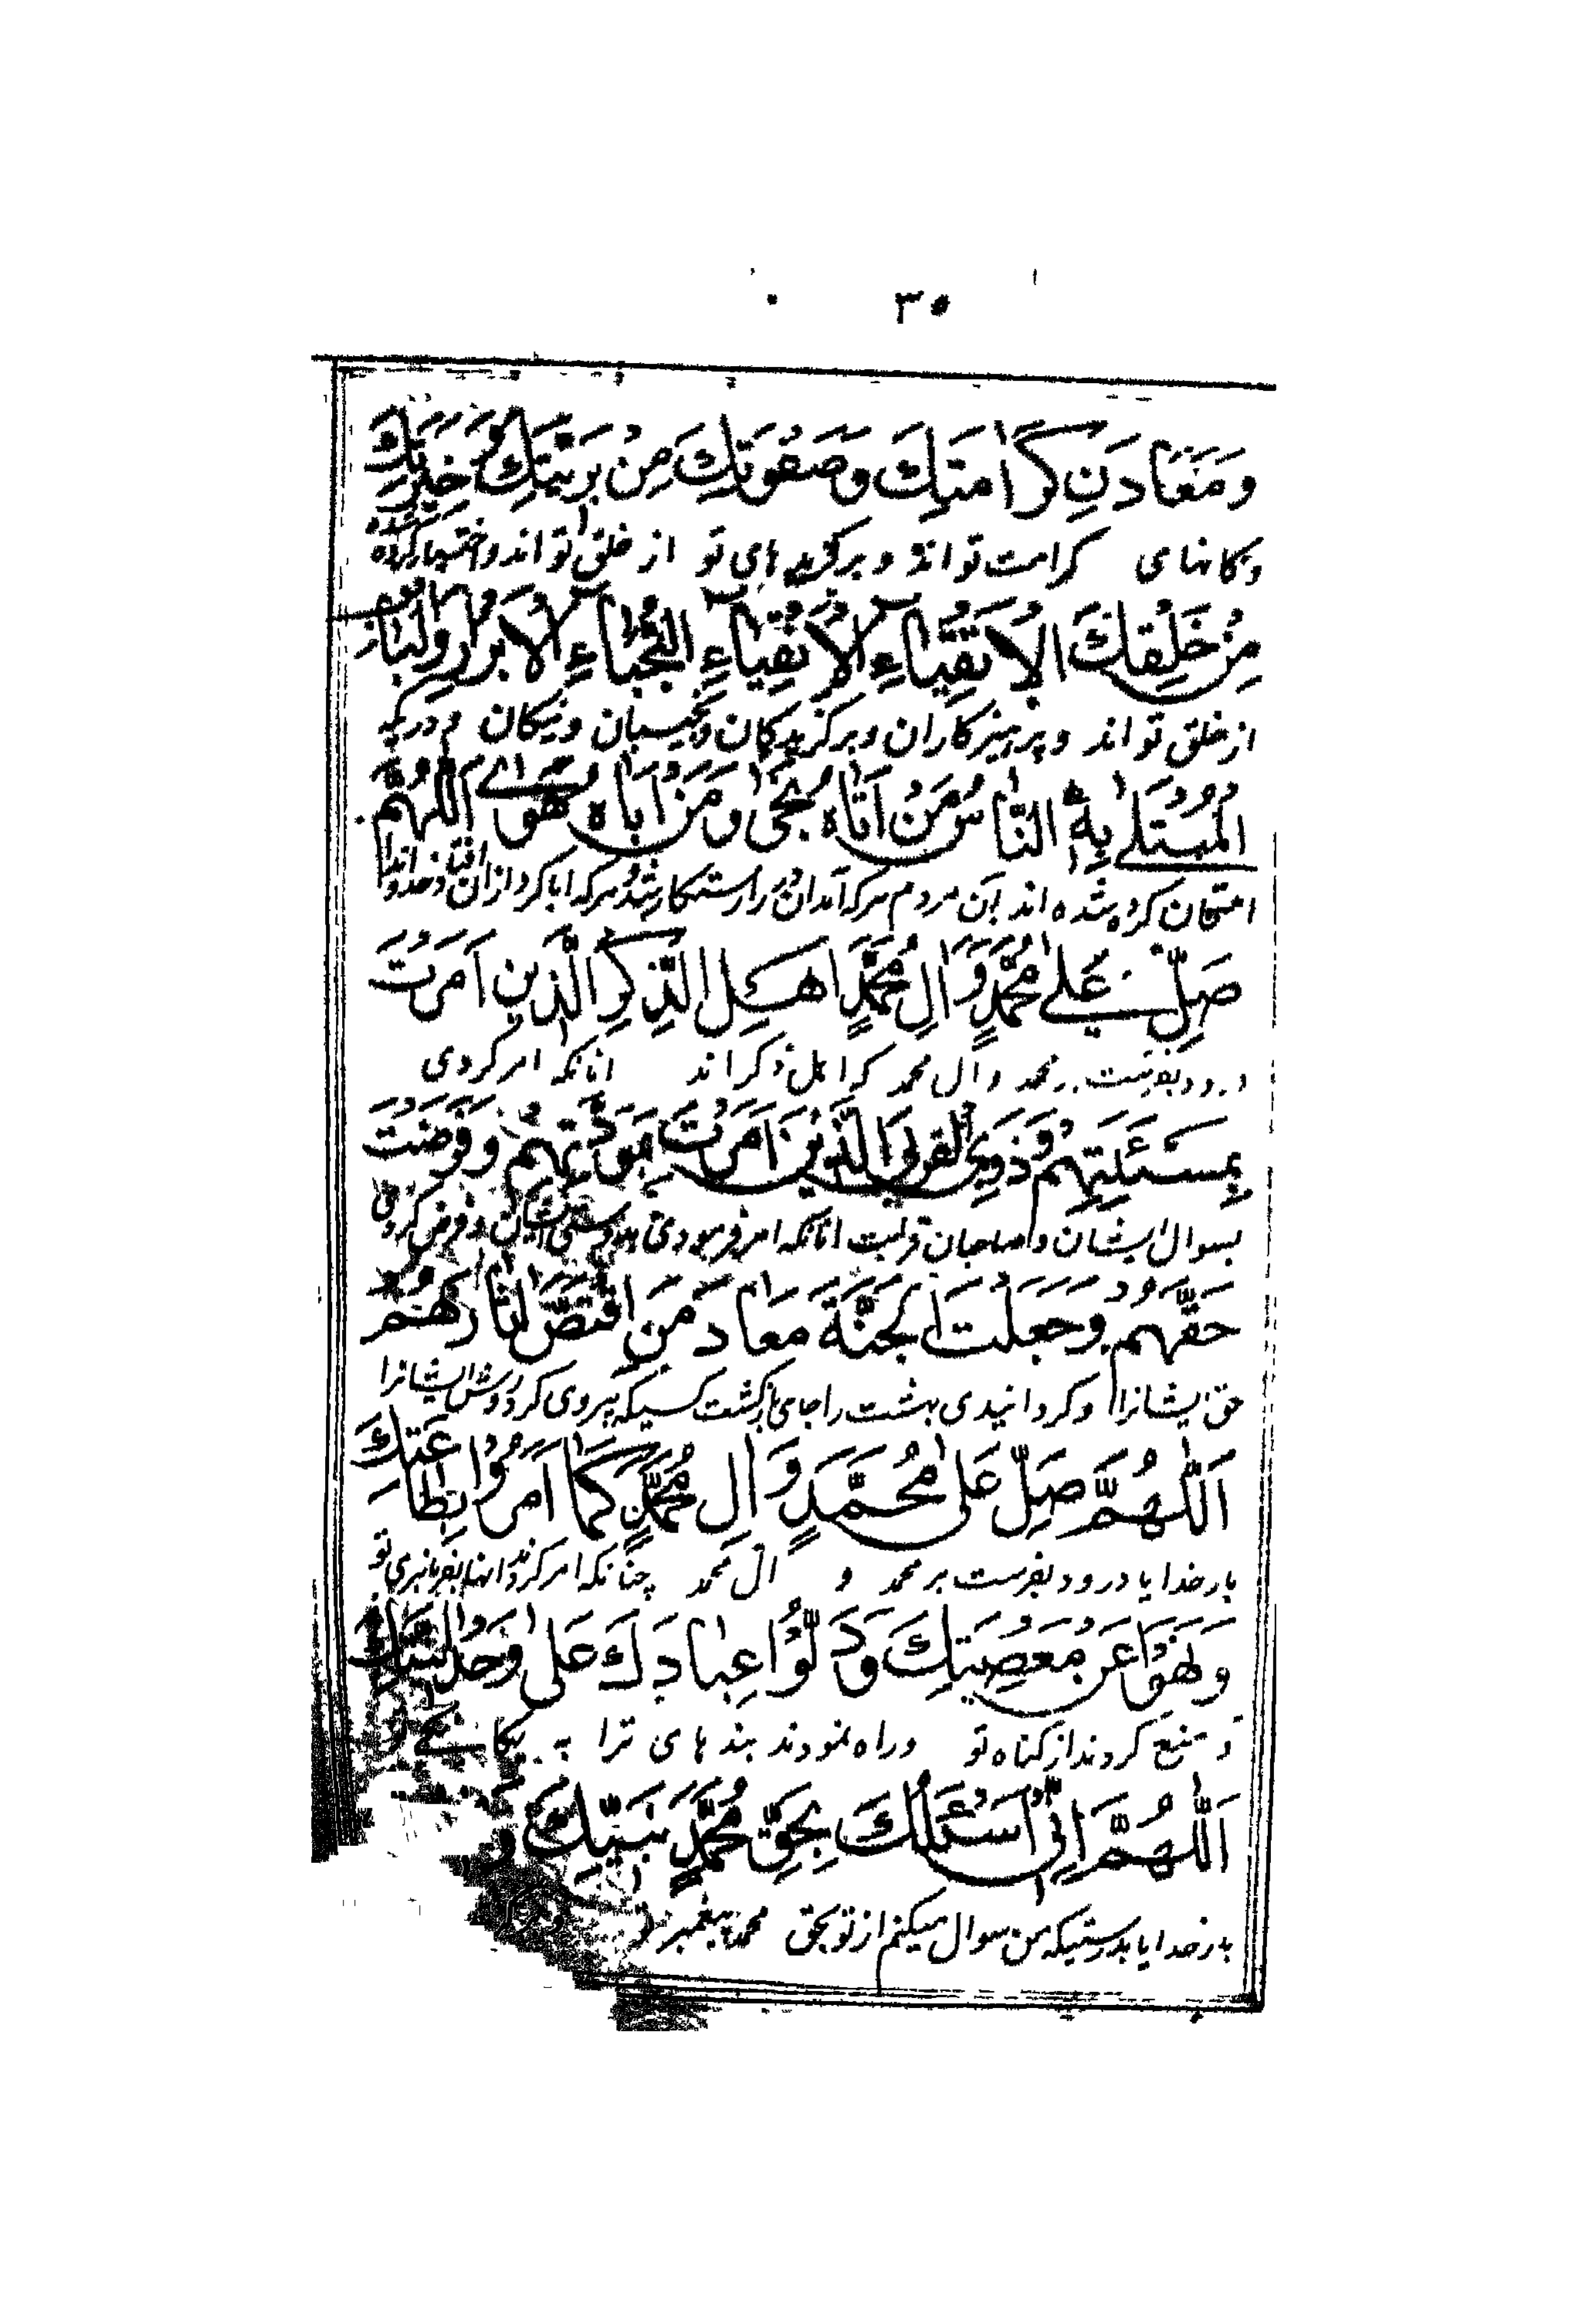 ۳۵
وَمَعَادَنِ كَرَامَتِكَ وَصَفْوَتِكَ مِنْ بَرِيَّتِكَ وَخِيَرَتِكَ
و کانهای کرامت تواند و برگزیده های تو از خلق تواند و اختیار کرده شده
مِنْ خَلْقِكَ الْاَتْقِيَاءِ الْاَنْقِيَاءِ النُّجَبَاءِ الْاَبْرَارِ وَالْبَابِ
از خلق تواند و پرهیزکاران و برگزیدگان و نجیبان و نیکان و درگه
الْمُبْتَلَى بِهِ النَّاسُ مَنْ اَتَاهُ نَجَى وَمَنْ اَبَاهُ هَوَى اَللّٰهُمَّ
امتحان کرده شده اند بآن مردم هرکه آمد آن در را رستگار شد و هرکه ابا کرد ازان افتاد خداوندا
صَلِّ عَلَى مُحَمَّدٍ وَّاٰلِ مُحَمَّدٍ اَهْلِ الذِّكْرِ الَّذِينَ اَمَرْتَ
درود بفرست بر محمد و آل محمد که اهل ذکر اند انانکه امر کردی
بِمَسْئَلَتِهِمْ وَذَوِي الْقُرْبَى الَّذِينَ اَمَرْتَ بِمَوَدَّتِهِمْ وَفَرَضْتَ
بسوال ایشان و صاحبان قرابت انانکه امر فرمودی بدوستی ایشان و فرض کردی
حَقَّهُمْ وَجَعَلْتَ الْجَنَّةَ مَعَادَ مَنِ اقْتَصَّ اٰثَارَهُمْ
حق ایشانرا و گردانیدی بهشت را جای بازگشت کسیکه پیروی کرد روش ایشانرا
اَللّٰهُمَّ صَلِّ عَلَى مُحَمَّدٍ وَّ اٰلِ مُحَمَّدٍ كَمَا اَمَرُوْا بِطَاعَتِكَ
بار خدایا درود بفرست بر محمد و آل محمد چنانکه امر کردند انها بفرمانبری تو
وَنَهَوْا عَنْ مَعْصِيَتِكَ وَدَلُّوْا عِبَادَكَ عَلَى وَحْدَانِيَّتِكَ
و منع کردند از گناه تو و راه نمودند بندهای ترا به یکانگی
اَللّٰهُمَّ اِنِّي اَسْئَلُكَ بِحَقِّ مُحَمَّدٍ نَبِيِّكَ وَ
بار خدایا بدرستیکه من سوال میکنم از تو بحق محمد پیغمبر